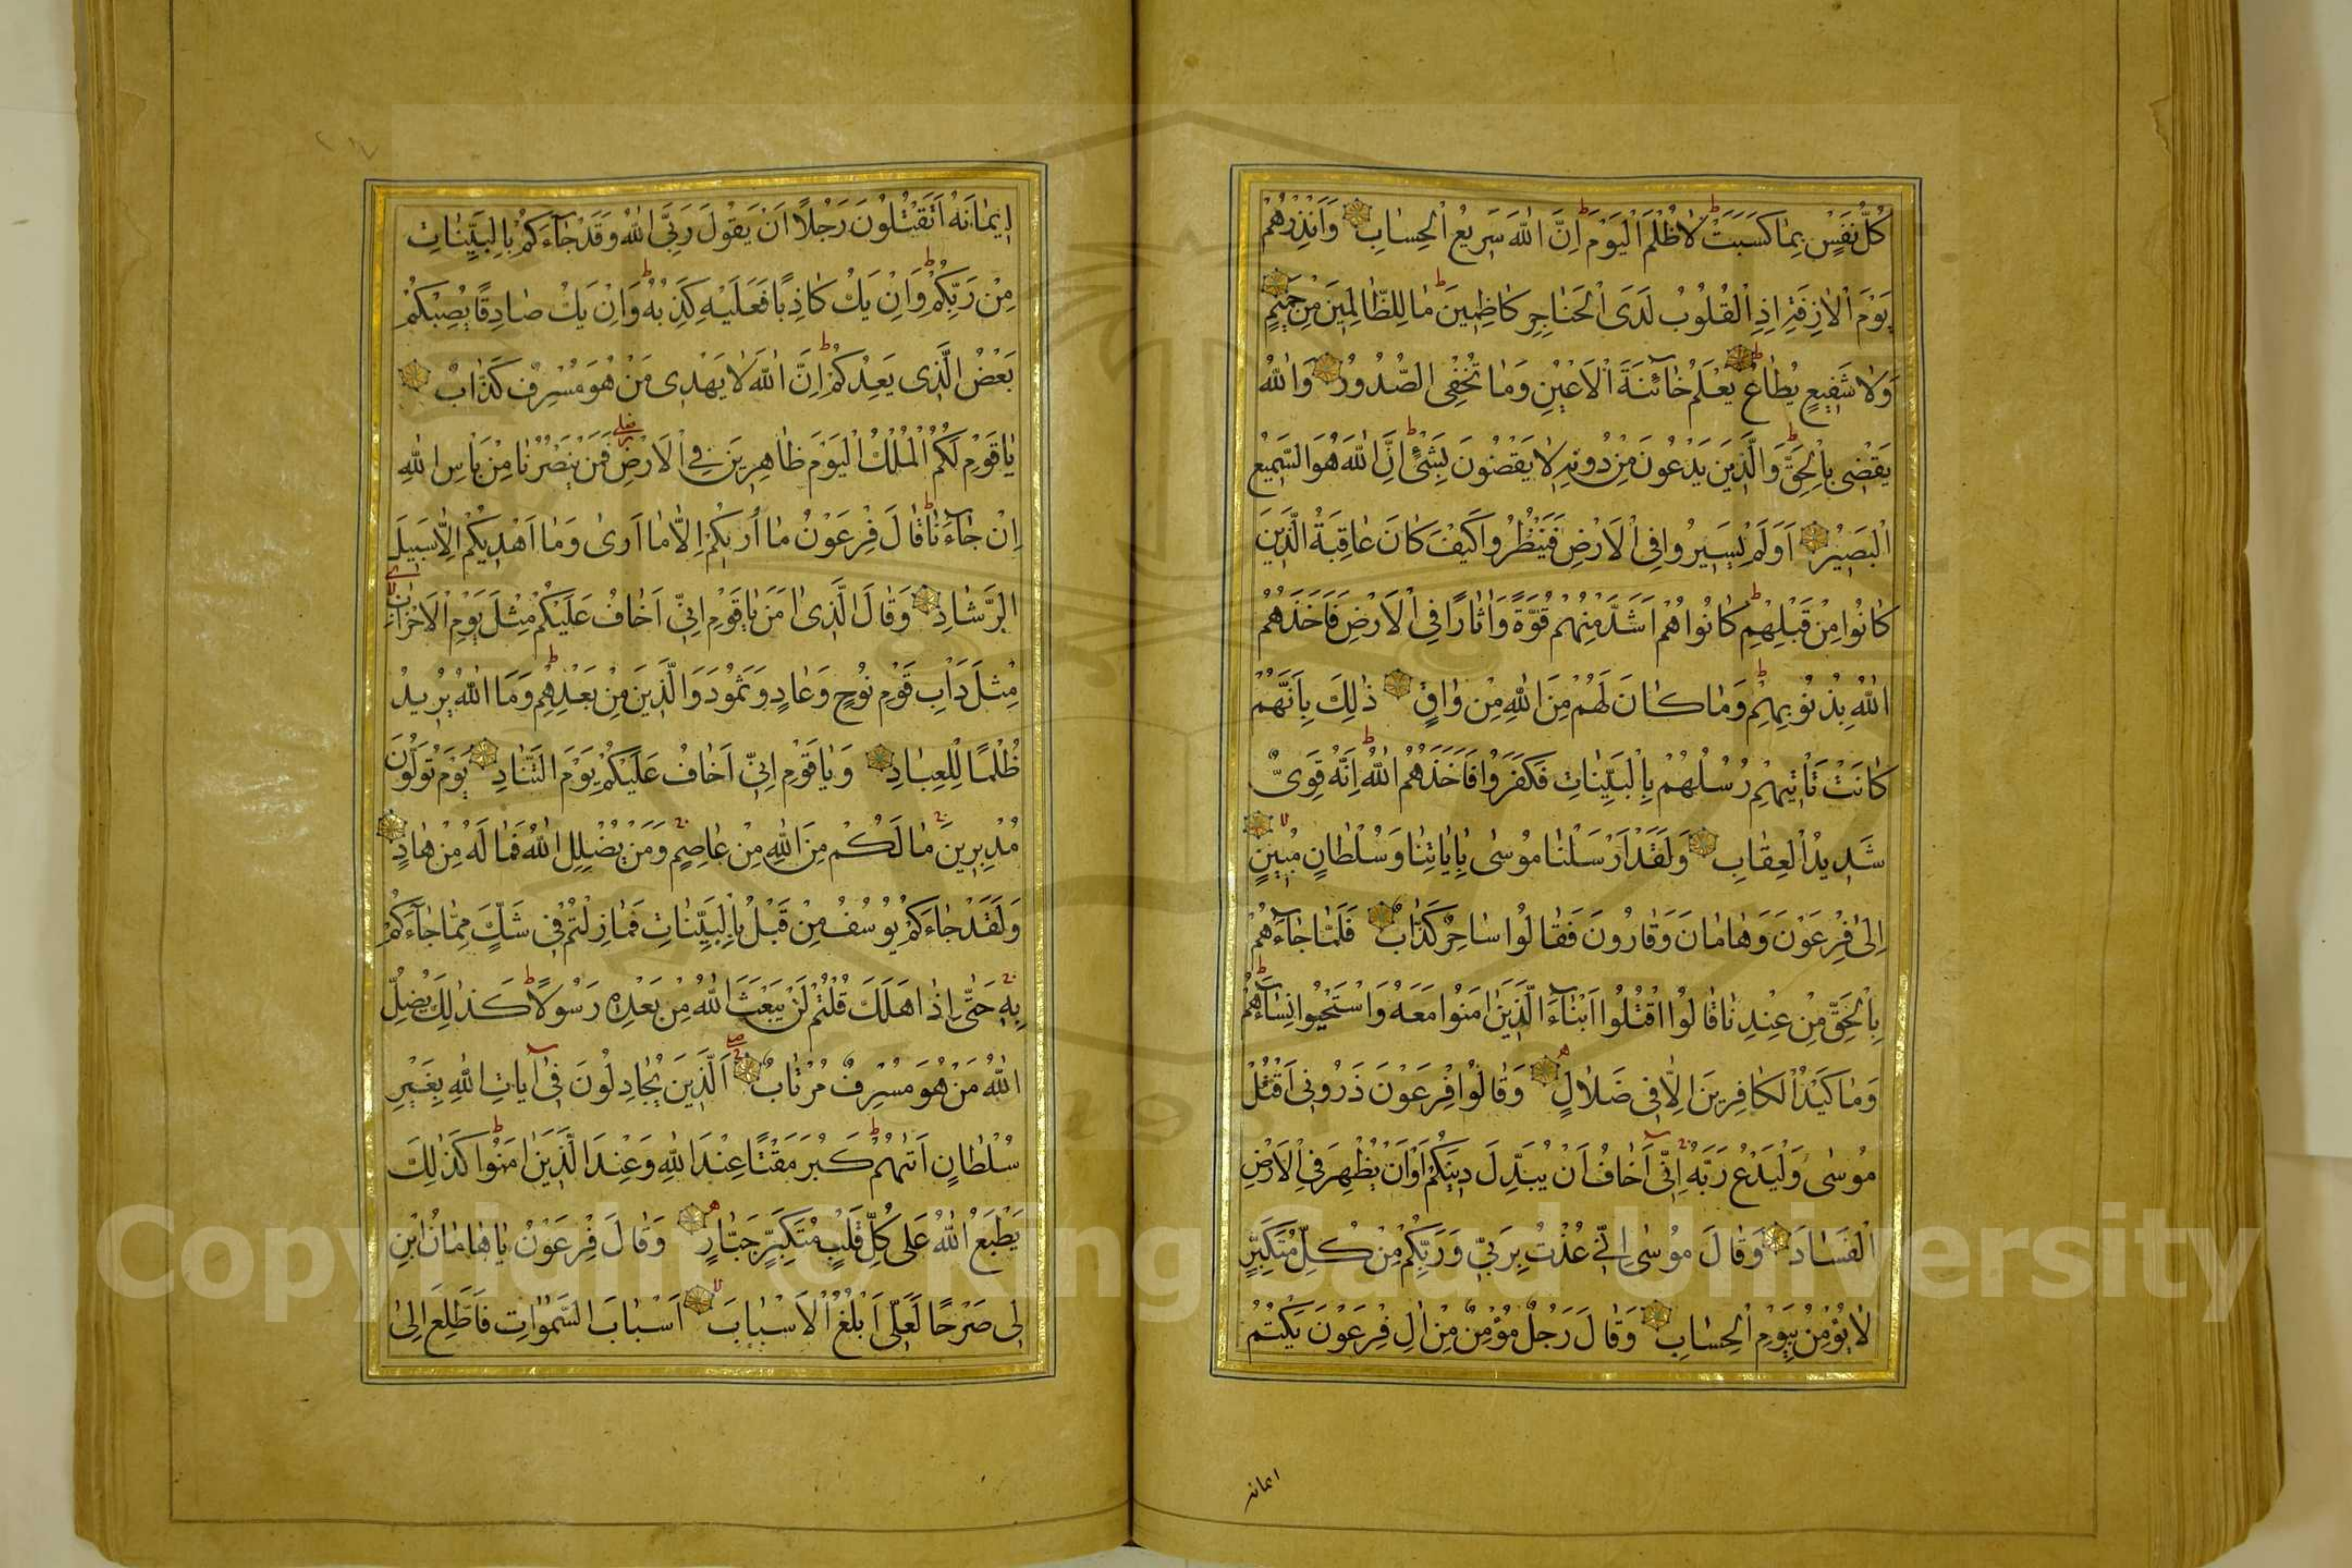 كُلُّ نَفْسٍ بِمٰا كَسَبَتْ لٰا ظُلْمَ الْيَوْمَ اِنَّ اللّٰهَ سَرِيعُ الْحِسٰابِ وَاَنْذِرْهُمْ
يَوْمَ الْاٰزِفَةِ اِذِ الْقُلُوبُ لَدَى الْحَنٰاجِرِ كٰاظِمِينَ مٰا لِلظّٰالِمِينَ مِنْ حَمِيمٍ
وَلٰا شَفِيعٍ يُطٰاعُ يَعْلَمُ خٰائِنَةَ الْاَعْيُنِ وَمٰا تُخْفِى الصُّدُورُ وَاللّٰهُ
يَقْضِى بِالْحَقِّ وَالَّذِينَ يَدْعُونَ مِنْ دُونِهِ لٰا يَقْضُونَ بِشَىْءٍ اِنَّ اللّٰهَ هُوَ السَّمِيعُ
الْبَصِيرُ اَوَلَمْ يَسِيرُوا فِى الْاَرْضِ فَيَنْظُرُوا كَيْفَ كٰانَ عٰاقِبَةُ الَّذِينَ
كٰانُوا مِنْ قَبْلِهِمْ كٰانُوا هُمْ اَشَدَّ مِنْهُمْ قُوَّةً وَاٰثٰارًا فِى الْاَرْضِ فَاَخَذَهُمُ
اللّٰهُ بِذُنُوبِهِمْ وَمٰا كٰانَ لَهُمْ مِنَ اللّٰهِ مِنْ وٰاقٍ ذٰلِكَ بِاَنَّهُمْ
كٰانَتْ تَاْتِيهِمْ رُسُلُهُمْ بِالْبَيِّنٰاتِ فَكَفَرُوا فَاَخَذَهُمُ اللّٰهُ اِنَّهُ قَوِىٌّ
شَدِيدُ الْعِقٰابِ وَلَقَدْ اَرْسَلْنٰا مُوسٰى بِاٰيٰاتِنٰا وَسُلْطٰانٍ مُبِينٍ
اِلٰى فِرْعَوْنَ وَهٰامٰانَ وَقٰارُونَ فَقٰالُوا سٰاحِرٌ كَذّٰابٌ فَلَمّٰا جٰاءَهُمْ
بِالْحَقِّ مِنْ عِنْدِنٰا قٰالُوا اقْتُلُوا اَبْنٰاءَ الَّذِينَ اٰمَنُوا مَعَهُ وَاسْتَحْيُوا نِسٰاءَهُمْ
وَمٰا كَيْدُ الْكٰافِرِينَ اِلّٰا فِى ضَلٰالٍ وَقٰالُوا فِرْعَوْنَ ذَرُونِى اَقْتُلْ
مُوسٰى وَلْيَدْعُ رَبَّهُ اِنِّى اَخٰافُ اَنْ يُبَدِّلَ دِينَكُمْ اَوْ اَنْ يُظْهِرَ فِى الْاَرْضِ
الْفَسٰادَ وَقٰالَ مُوسٰى اِنِّى عُذْتُ بِرَبِّى وَرَبِّكُمْ مِنْ كُلِّ مُتَكَبِّرٍ
لٰا يُؤْمِنُ بِيَوْمِ الْحِسٰابِ وَقٰالَ رَجُلٌ مُؤْمِنٌ مِنْ اٰلِ فِرْعَوْنَ يَكْتُمُ
ايمانه
اِيمٰانَهُ اَتَقْتُلُونَ رَجُلًا اَنْ يَقُولَ رَبِّىَ اللّٰهُ وَقَدْ جٰاءَكُمْ بِالْبَيِّنٰاتِ
مِنْ رَبِّكُمْ وَاِنْ يَكُ كٰاذِبًا فَعَلَيْهِ كَذِبُهُ وَاِنْ يَكُ صٰادِقًا يُصِبْكُمْ
بَعْضُ الَّذِى يَعِدُكُمْ اِنَّ اللّٰهَ لٰا يَهْدِى مَنْ هُوَ مُسْرِفٌ كَذّٰابٌ
يٰا قَوْمِ لَكُمُ الْمُلْكُ الْيَوْمَ ظٰاهِرِينَ فِى الْاَرْضِ فَمَنْ يَنْصُرُنٰا مِنْ بَاْسِ اللّٰهِ
اِنْ جٰاءَنٰا قٰالَ فِرْعَوْنُ مٰا اُرِيكُمْ اِلّٰا مٰا اَرٰى وَمٰا اَهْدِيكُمْ اِلّٰا سَبِيلَ
الرَّشٰادِ وَقٰالَ الَّذِى اٰمَنَ يٰا قَوْمِ اِنِّى اَخٰافُ عَلَيْكُمْ مِثْلَ يَوْمِ الْاَحْزٰابِ
مِثْلَ دَاْبِ قَوْمِ نُوحٍ وَعٰادٍ وَثَمُودَ وَالَّذِينَ مِنْ بَعْدِهِمْ وَمَا اللّٰهُ يُرِيدُ
ظُلْمًا لِلْعِبٰادِ وَيٰا قَوْمِ اِنِّى اَخٰافُ عَلَيْكُمْ يَوْمَ التَّنٰادِ يَوْمَ تُوَلُّونَ
مُدْبِرِينَ مٰا لَكُمْ مِنَ اللّٰهِ مِنْ عٰاصِمٍ وَمَنْ يُضْلِلِ اللّٰهُ فَمٰا لَهُ مِنْ هٰادٍ
وَلَقَدْ جٰاءَكُمْ يُوسُفُ مِنْ قَبْلُ بِالْبَيِّنٰاتِ فَمٰا زِلْتُمْ فِى شَكٍّ مِمّٰا جٰاءَكُمْ
بِهِ حَتّٰى اِذٰا هَلَكَ قُلْتُمْ لَنْ يَبْعَثَ اللّٰهُ مِنْ بَعْدِهِ رَسُولًا كَذٰلِكَ يُضِلُّ
اللّٰهُ مَنْ هُوَ مُسْرِفٌ مُرْتٰابٌ اَلَّذِينَ يُجٰادِلُونَ فِى اٰيٰاتِ اللّٰهِ بِغَيْرِ
سُلْطٰانٍ اَتٰيهُمْ كَبُرَ مَقْتًا عِنْدَ اللّٰهِ وَعِنْدَ الَّذِينَ اٰمَنُوا كَذٰلِكَ
يَطْبَعُ اللّٰهُ عَلٰى كُلِّ قَلْبِ مُتَكَبِّرٍ جَبّٰارٍ وَقٰالَ فِرْعَوْنُ يٰا هٰامٰانُ ابْنِ
لِى صَرْحًا لَعَلِّى اَبْلُغُ الْاَسْبٰابَ اَسْبٰابَ السَّمٰوٰاتِ فَاَطَّلِعَ اِلٰى
Copyright © King Saud University